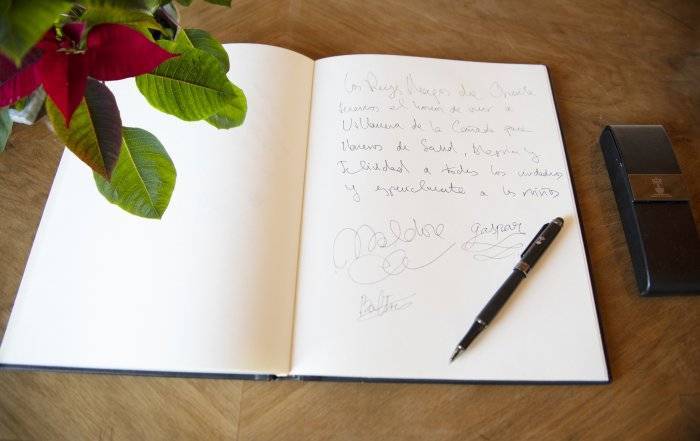 Los Reyes Magos de Oriente
tenemos el honor de venir a
Villanueva de la Cañada para
llenaros de Salud, Alegría y
Felicidad a todos los
y especialmente a los niños
Melchor gaspar
Baltasar